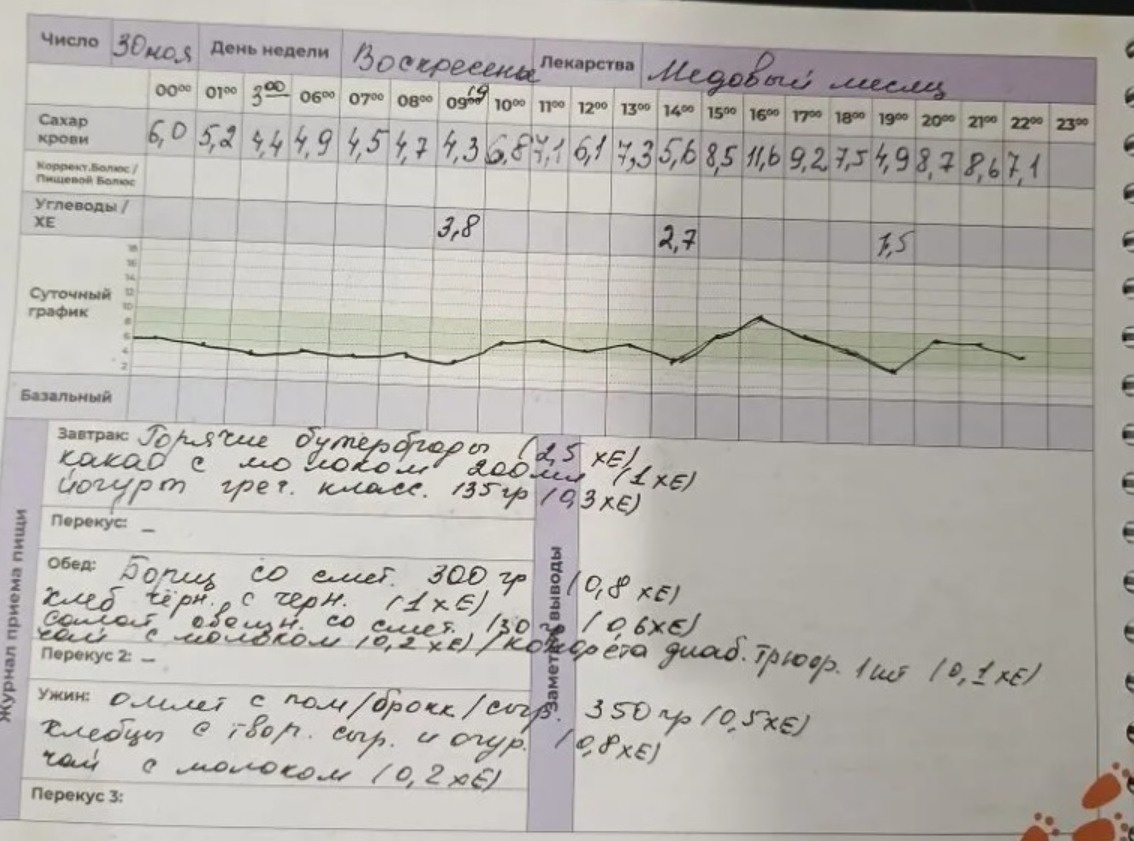 Число 30 ноя День недели Воскресенье Лекарства Медовый месяц
00⁰⁰ 01⁰⁰ 3⁰⁰ 06⁰⁰ 07⁰⁰ 08⁰⁰ 09¹⁹ 10⁰⁰ 11⁰⁰ 12⁰⁰ 13⁰⁰ 14⁰⁰ 15⁰⁰ 16⁰⁰ 17⁰⁰ 18⁰⁰ 19⁰⁰ 20⁰⁰ 21⁰⁰ 22⁰⁰ 23⁰⁰
Сахар
крови 6,0 5,2 4,4 4,9 4,5 4,7 4,3 6,8 7,1 6,1 7,3 5,6 8,5 11,6 9,2 7,5 4,9 8,7 8,6 7,1
Коррект.Болюс /
Пищевой Болюс
Углеводы /
ХЕ 3,8 2,7 1,5
18
16
14
12
10
8
6
4
2
Суточный
график
Базальный
Журнал приема пищи
Завтрак: Горячие бутерброды (2,5 ХЕ)
какао с молоком 200мл (1 ХЕ)
йогурт греч. класс. 135 гр (0,3 ХЕ)
Перекус: –
Обед: Борщ со смет. 300 гр (0,8 ХЕ)
хлеб чёрн. с черн. (1 ХЕ)
салат овощн. со смет. 130 гр (0,6 ХЕ)
чай с молоком (0,2 ХЕ) / конфета диаб. трюф. 1 шт (0,1 ХЕ)
Перекус 2: –
Ужин: омлет с пом/брокк/сыр. 350 гр (0,5 ХЕ)
хлебцы с твор. сыр. и огур. (0,8 ХЕ)
чай с молоком (0,2 ХЕ)
Перекус 3:
Заметки выводы